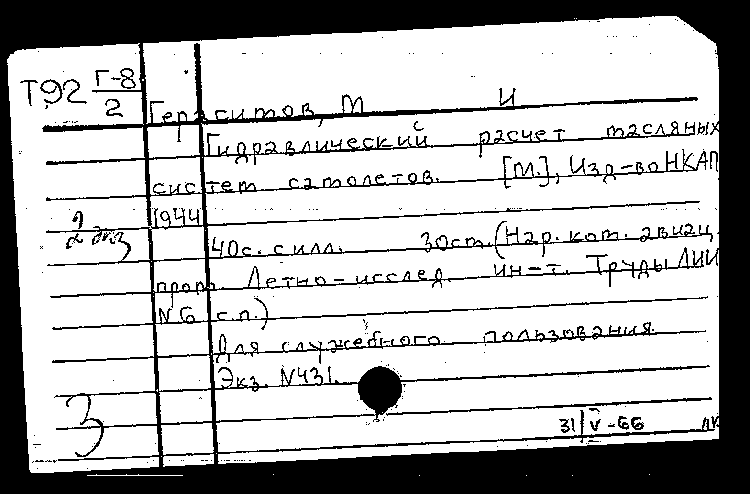 Т92 Г-8/2
Герасимов, М И
Гидравлический расчет масляных
систем самолетов. [М.], Изд-во НКАП
1944
2 экз
40с. с илл. 30см. (Нар. ком. авиац.
пром. Летно-исслед. ин-т. Труды ЛИИ
№6 с.п.)
Для служебного пользования.
Экз. №431.
3
31/V-66 ЛК